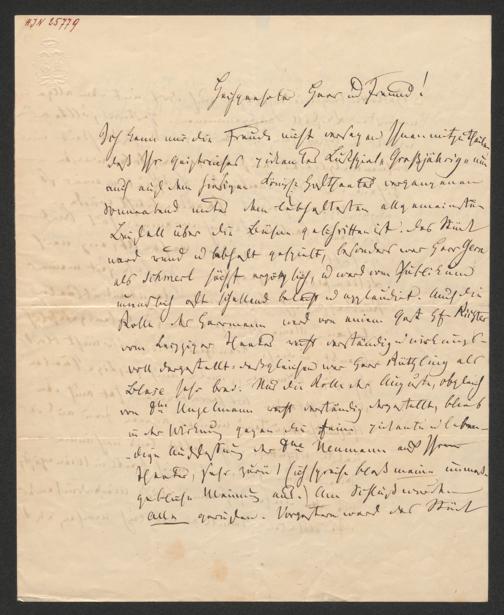 HIN 25779
Hochgeehrter Herr und Freund!
Ich kann mir die Freude nicht versagen Ihnen mitzutheilen
daß Ihr geistreiches pikantes Lustspiel Großjährig nun
auch auf dem hiesigen Königl. Hoftheater vergangenen
Sonnabend unter dem lebhaftesten allgemeinsten
Beifall über die Bühne geschritten ist. Das Stück
ward rund u lebhaft gespielt, besonders war Herr Gern
als Schmerl höchst ergötzlich, u ward vom Publikum
oft schallend belacht u applaudirt. Auch die
Rolle des Herrmann ward von einem Gast H
vom Leipziger Theater recht verständig u wirkungs-
voll dargestellt, desgleichen war Herr Rüthling als
Blase sehr brav. Nur die Rolle der Auguste, obgleich
von Dlle Unzelmann recht verständig dargestellt, blieb
in der Wirkung gegen die feine pikante u leben-
dige Auffassung der Dlle Neumann auf Ihrem
Theater, sehr zurück (ich spreche bloß meine unmaß-
gebliche Meinung aus.) Am Schluß wurden
Alle gerufen. Vorgestern ward das Stück